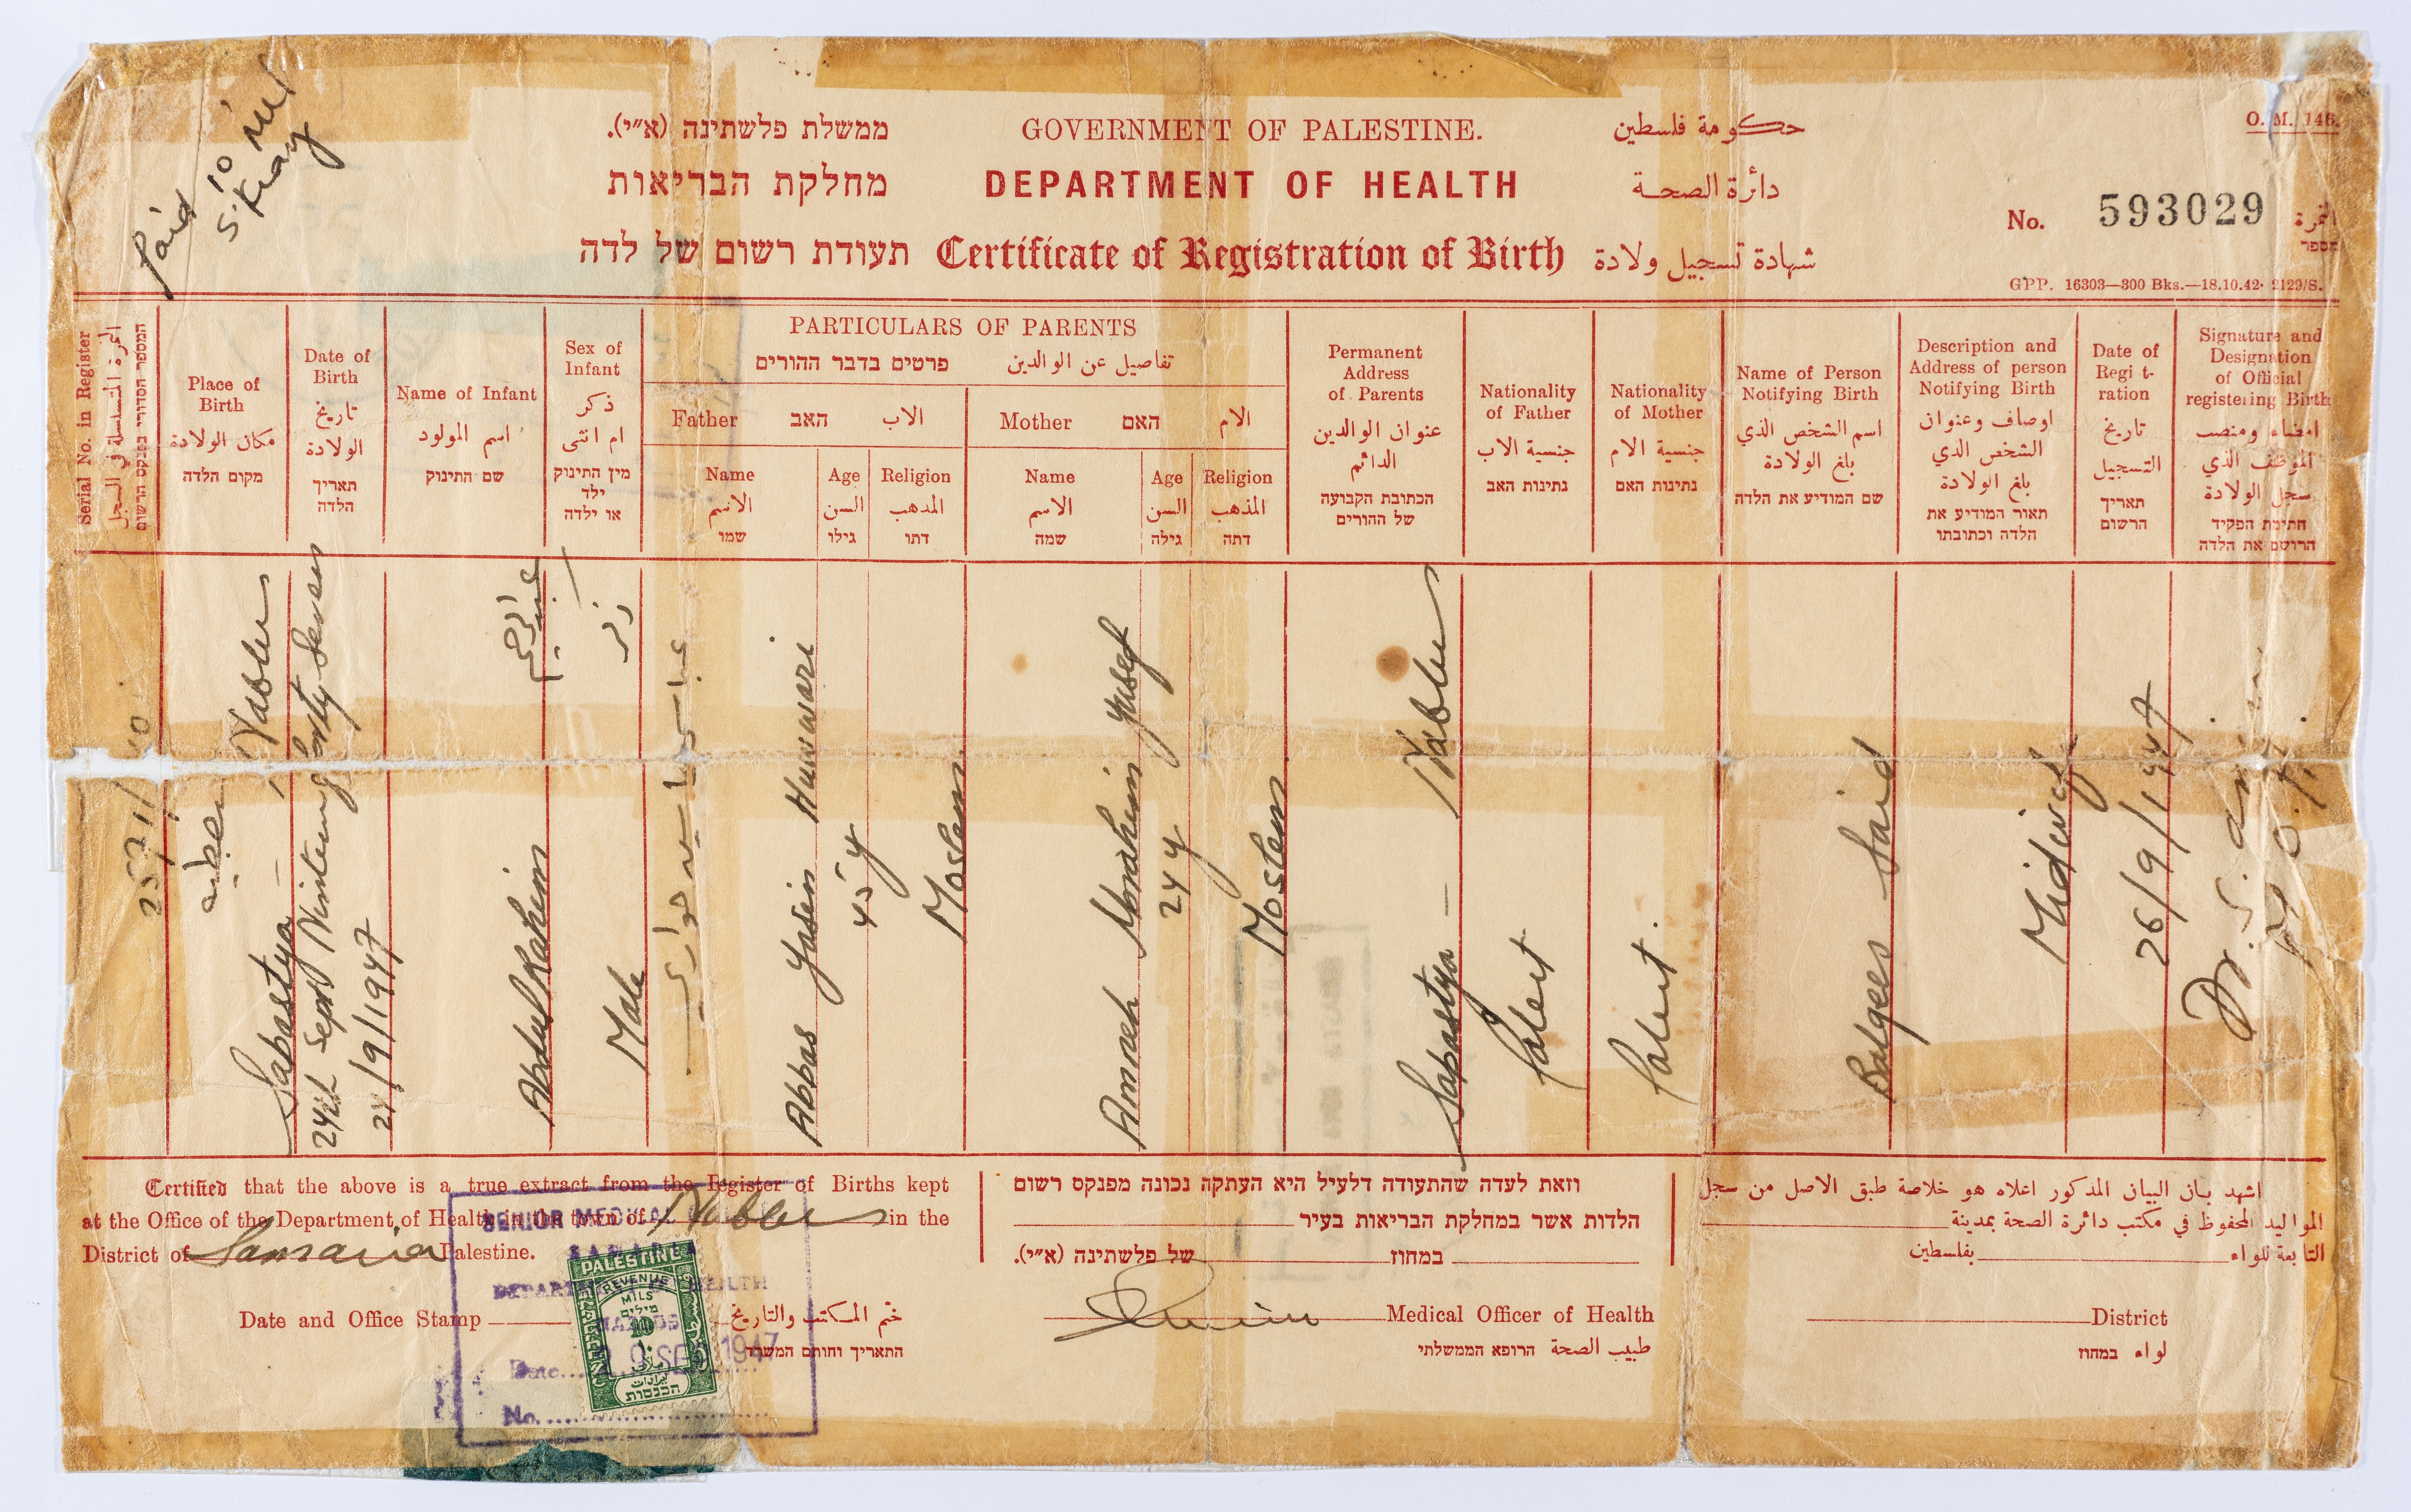 Paid
10 Mls
ממשלת פלשתינה (א״י). GOVERNMENT OF PALESTINE. حكومة فلسطين
O. M. 146.
מחלקת הבריאות DEPARTMENT OF HEALTH دائرة الصحة
No. 593029 النمرة
מספר
תעודת רשום של לדה Certificate of Registration of Birth شهادة تسجيل ولادة
GPP. 16303—300 Bks.—18.10.42. 2129/S.
Serial No. in Register
النمرة المتسلسلة في السجل
המספר הסדורי בפנקס הרשום
Place of
Birth
مكان الولادة
מקום הלדה
Date of
Birth
تاريخ
الولادة
תאריך
הלדה
Name of Infant
اسم المولود
שם התינוק
Sex of
Infant
ذكر
ام انثى
מין התינוק
ילד
או ילדה
PARTICULARS OF PARENTS
פרטים בדבר ההורים تفاصيل عن الوالدين
Father האב الاب
Mother האם الام
Name
الاسم
שמו
Age
السن
גילו
Religion
المذهب
דתו
Name
الاسم
שמה
Age
السن
גילה
Religion
المذهب
דתה
Permanent
Address
of Parents
عنوان الوالدين
الدائم
הכתובת הקבועה
של ההורים
Nationality
of Father
جنسية الاب
נתינות האב
Nationality
of Mother
جنسية الام
נתינות האם
Name of Person
Notifying Birth
اسم الشخص الذي
بلغ الولادة
שם המודיע את הלדה
Description and
Address of person
Notifying Birth
اوصاف وعنوان
الشخص الذي
بلغ الولادة
תאור המודיע את
הלדה וכתובתו
Date of
Regi t-
ration
تاريخ
التسجيل
תאריך
הרשום
Signature and
Designation
of Official
registering Birth
امضاء ومنصب
الموظف الذي
سجل الولادة
חתימת הפקיד
הרושם את הלדה
Sabastya — Nablus
سبسطيه
24th Sept Ninteen forty Seven
24/9/1947
Abdul Rahim
عبد الرحيم
Male
ذكر
عباس ياسين حواري
Abbas Yasin Huwwari
45 y
Moslem
Amneh Ibrahim Yusef
24 y
Moslem
Sabastya — Nablus
Palest
Palest.
Balqees Said
Midwife
26/9/1947
Dr. S. Amin
M. O. H.
Certified that the above is a true extract from the Register of Births kept
at the Office of the Department of Health in the town of Nablus in the
District of Samaria Palestine.
Date and Office Stamp خم المكتب والتاريخ
התאריך וחותם המשרד
SENIOR MEDICAL
SAMARIA
DEPARTMENT HEALTH
NABLUS
Date SEP 1947
No.
PALESTINE
REVENUE
MILS
מילים
10
١٠
ملات
ايرادات
הכנסות
וזאת לעדה שהתעודה דלעיל היא העתקה נכונה מפנקס רשום
הלדות אשר במחלקת הבריאות בעיר
במחוז של פלשתינה (א״י).
Medical Officer of Health
طبيب الصحة הרופא הממשלתי
اشهد بان البيان المذكور اعلاه هو خلاصة طبق الاصل من سجل
المواليد المحفوظ في مكتب دائرة الصحة بمدينة
التابعة للواء بفلسطين
District
لواء במחוז